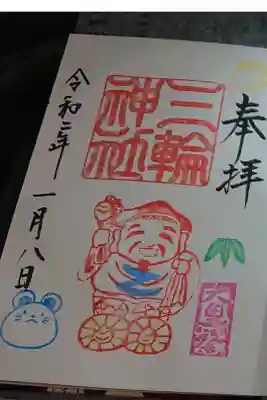 奉拝
三輪
神社
令和二年 一月八日